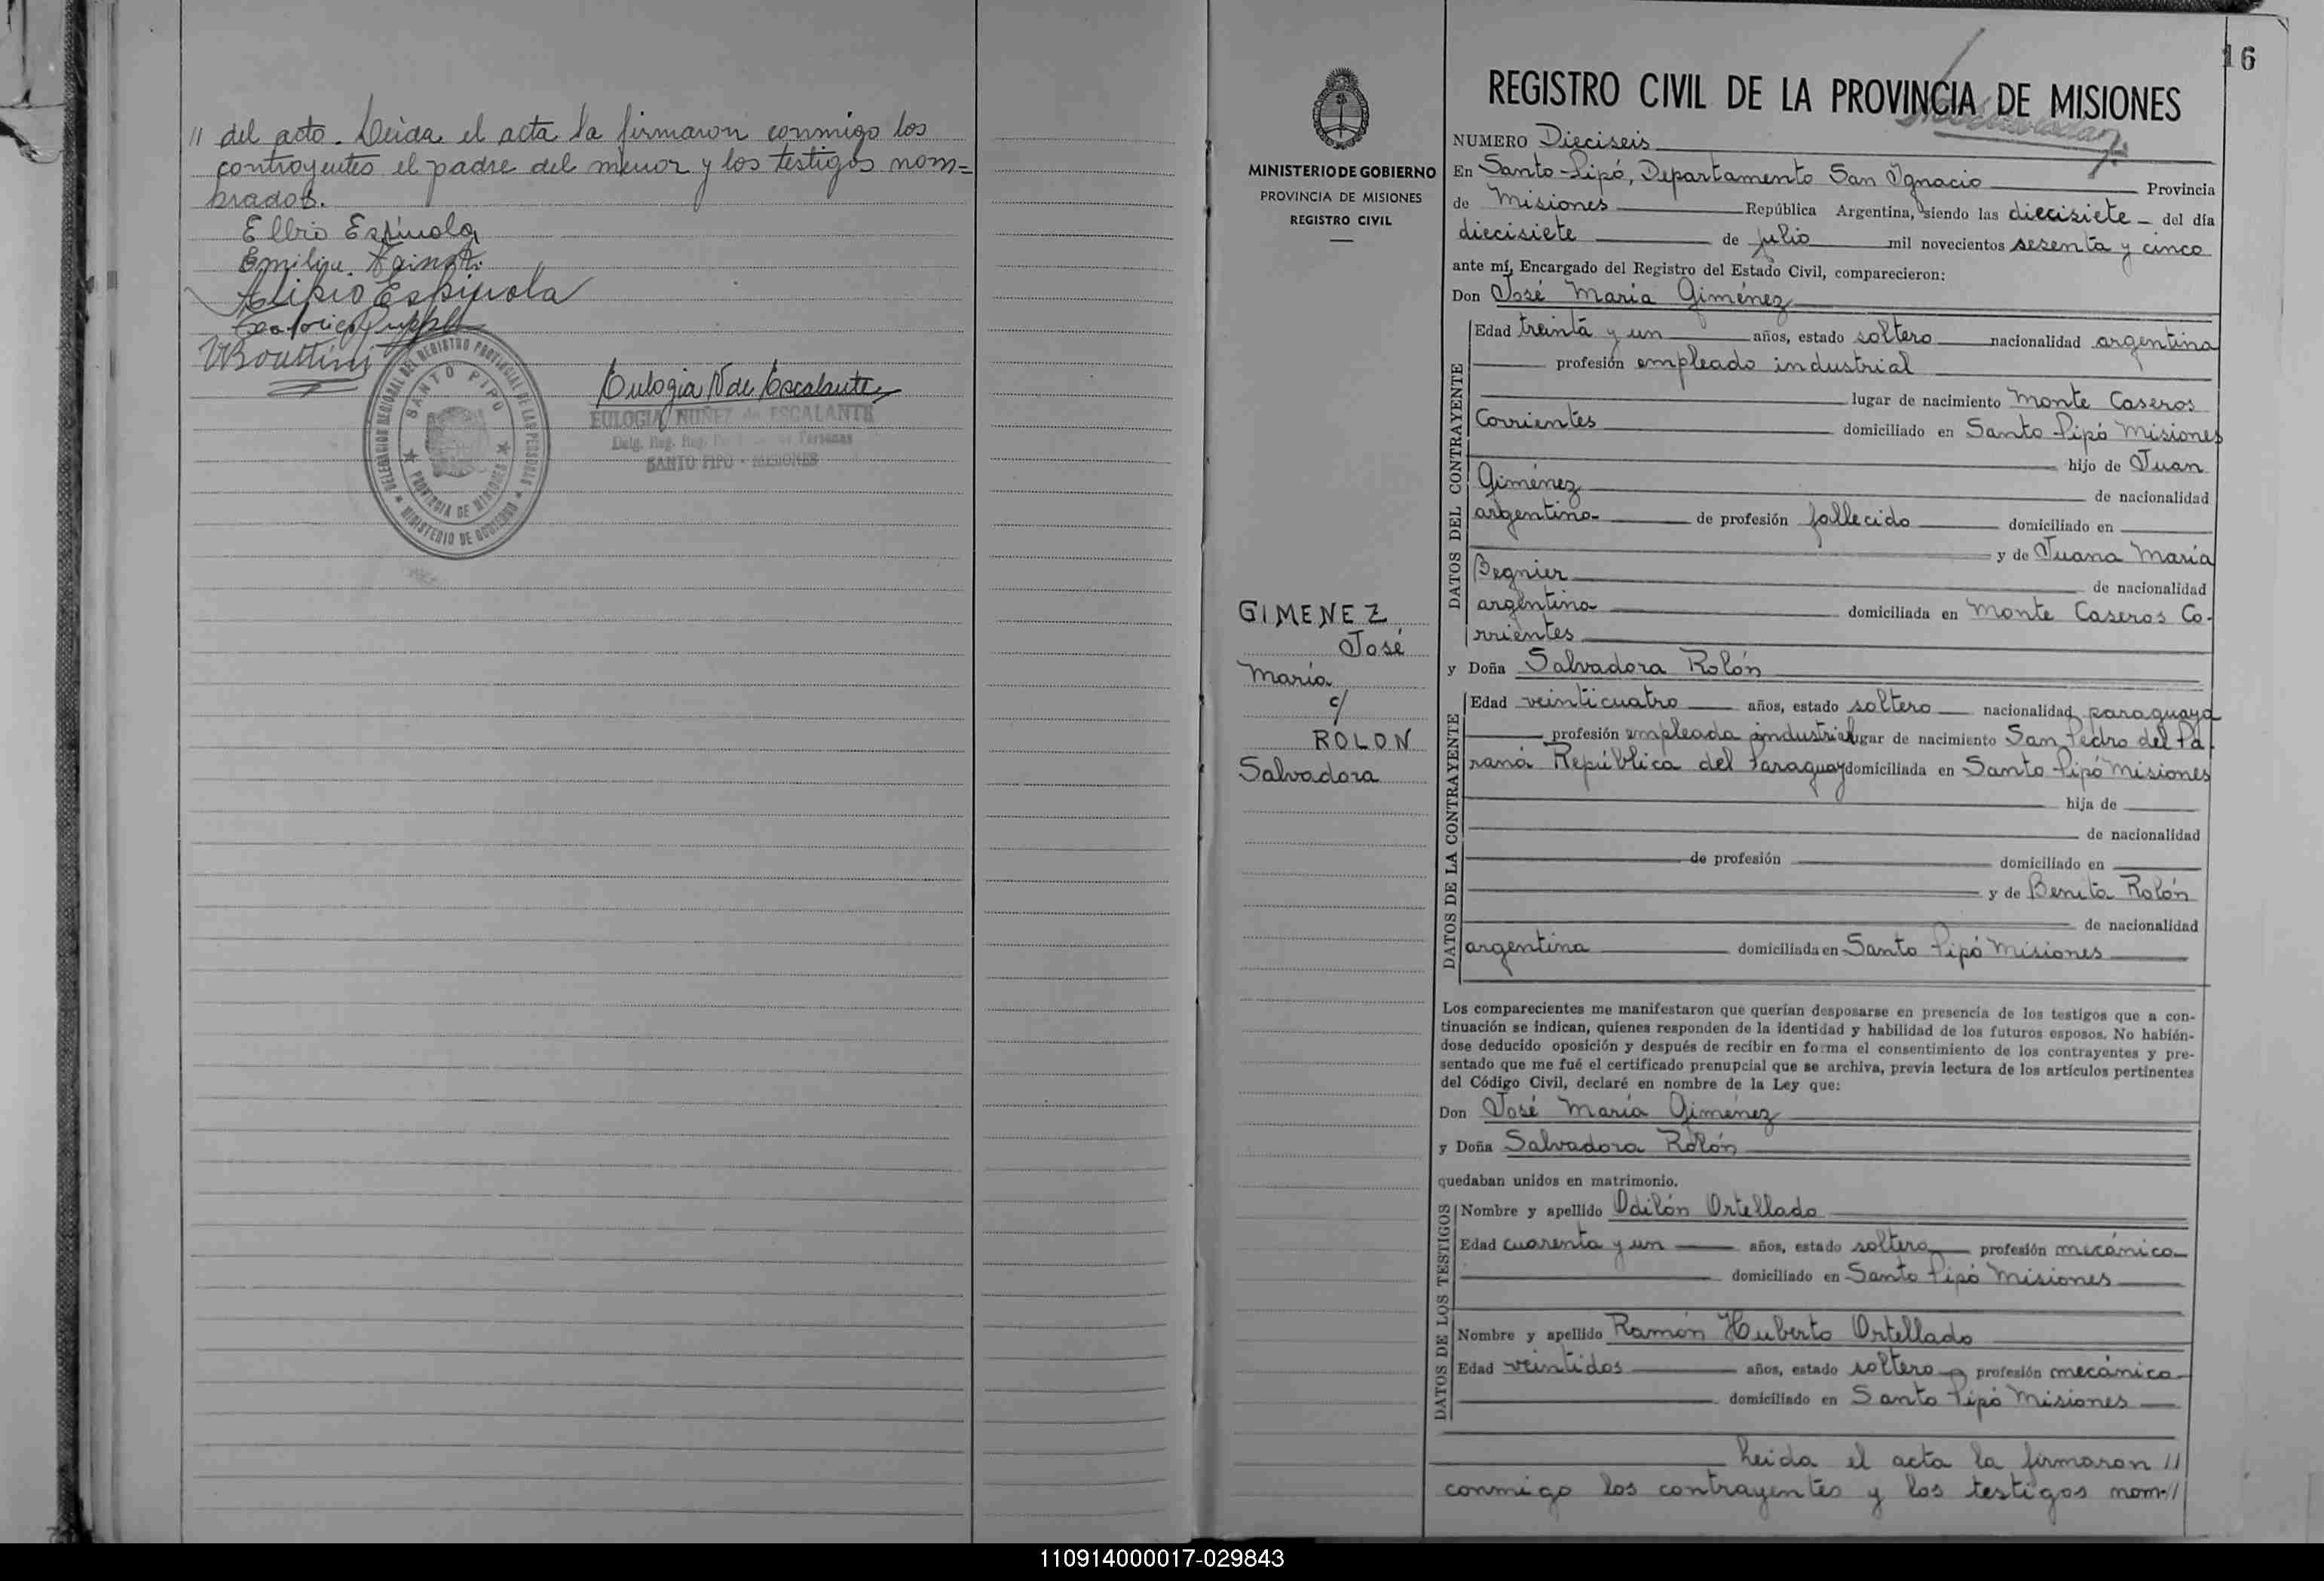 // del acto. Leida el acta la firmaron conmigo los
contrayentes el padre del menor y los testigos nom=
brados.
Elbio Espínola
Emilia
Alipio Espinola
Eulogia N de Escalante
EULOGIA NUÑEZ de ESCALANTE
Delg. Reg. Personas
SANTO PIPO - MISIONES
DELEGACION REGIONAL DEL REGISTRO PROVINCIAL DE LAS PERSONAS
MINISTERIO DE GOBIERNO
SANTO PIPO
PROVINCIA DE MISIONES
16
MINISTERIO DE GOBIERNO
PROVINCIA DE MISIONES
REGISTRO CIVIL
GIMENEZ
José
María
c/
ROLON
Salvadora
REGISTRO CIVIL DE LA PROVINCIA DE MISIONES
NUMERO Dieciseis
En Santo Pipó, Departamento San Ignacio Provincia
de Misiones República Argentina, siendo las diecisiete del día
diecisiete de julio mil novecientos sesenta y cinco
ante mí, Encargado del Registro del Estado Civil, comparecieron:
Don José María Giménez
DATOS DEL CONTRAYENTE
Edad treinta y un años, estado soltero nacionalidad argentina
profesión empleado industrial
lugar de nacimiento Monte Caseros
Corrientes domiciliado en Santo Pipó Misiones
hijo de Juan
Giménez de nacionalidad
argentina de profesión fallecido domiciliado en
y de Juana María
Begnier de nacionalidad
argentina domiciliada en Monte Caseros Co-
rrientes
y Doña Salvadora Rolón
DATOS DE LA CONTRAYENTE
Edad veinticuatro años, estado soltero nacionalidad paraguaya
profesión empleada industrial lugar de nacimiento San Pedro del Pa-
raná República del Paraguay domiciliada en Santo Pipó Misiones
hija de
de nacionalidad
de profesión domiciliado en
y de Benita Rolón
de nacionalidad
argentina domiciliada en Santo Pipó Misiones
Los comparecientes me manifestaron que querían desposarse en presencia de los testigos que a con-
tinuación se indican, quienes responden de la identidad y habilidad de los futuros esposos. No habién-
dose deducido oposición y después de recibir en forma el consentimiento de los contrayentes y pre-
sentado que me fué el certificado prenupcial que se archiva, previa lectura de los artículos pertinentes
del Código Civil, declaré en nombre de la Ley que:
Don José María Giménez
y Doña Salvadora Rolón
quedaban unidos en matrimonio.
DATOS DE LOS TESTIGOS
Nombre y apellido Odilón Ortellado
Edad cuarenta y un años, estado soltero profesión mecánico
domiciliado en Santo Pipó Misiones
Nombre y apellido Ramón Huberto Ortellado
Edad veintidos años, estado soltero profesión mecánico
domiciliado en Santo Pipó Misiones
Leida el acta la firmaron //
conmigo los contrayentes y los testigos nom-//
110914000017-029843